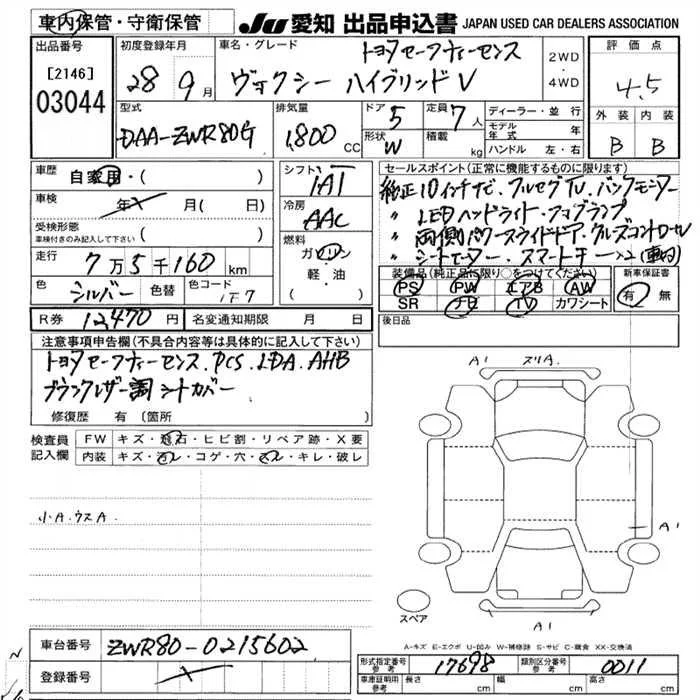 車内保管・守衛保管
JU 愛知 出品申込書 JAPAN USED CAR DEALERS ASSOCIATION
出品番号
[2146]
03044
初度登録年月
28 9月
車名・グレード
トヨタセーフティーセンス
ヴォクシー ハイブリッド V
2WD
・
4WD
評価点
4.5
外装 内装
B B
型式
DAA-ZWR80G
排気量
1,800 CC
ドア 5
形状 W
定員 7人
積載 kg
ディーラー・並行
モデル年式 年
ハンドル 左・右
車歴
自家用・( )
車検
年 月(日)
受検形態
車検付きのみ記入して下さい
( )
走行
7万5千160 km
色 シルバー 色替 色コード 1F7
シフト
IAT
冷房
AAC
燃料
ガソリン
軽・油
( )
セールスポイント(正常に機能するものに限ります)
純正10インチナビ、フルセグTV、バックモニター
〃 LEDヘッドライト・フォグランプ
〃 両側パワースライドドア、クルーズコントロール
〃 シートヒーター、スマートキー×2(車内)
装備品(純正品に限り○をつけてください)
PS PW エアB AW
SR ナビ TV カワシート
新車保証書
有・無
後日品
R券 12,470円 名変通知期限 月 日
注意事項申告欄(不具合内容等は具体的に記入して下さい)
トヨタセーフティーセンス、PCS、LDA、AHB
ブラックレザー調シートカバー
修復歴 有(箇所 )
検査員
記入欄
FW キズ・飛石・ヒビ割・リペア跡・X要
内装 キズ・汚レ・コゲ・穴・スレ・キレ・破レ
小A、ウスA
A1 スリA
A1
A1
スペア
A-キズ E-エクボ U-凹み W-補修跡 S-サビ C-腐食 XX-交換済
車台番号 ZWR80-0215602
登録番号
形式指定番号 参考 17698 類別区分番号 参考 0011
車庫証明用 参考 長さ cm 幅 cm 高さ cm